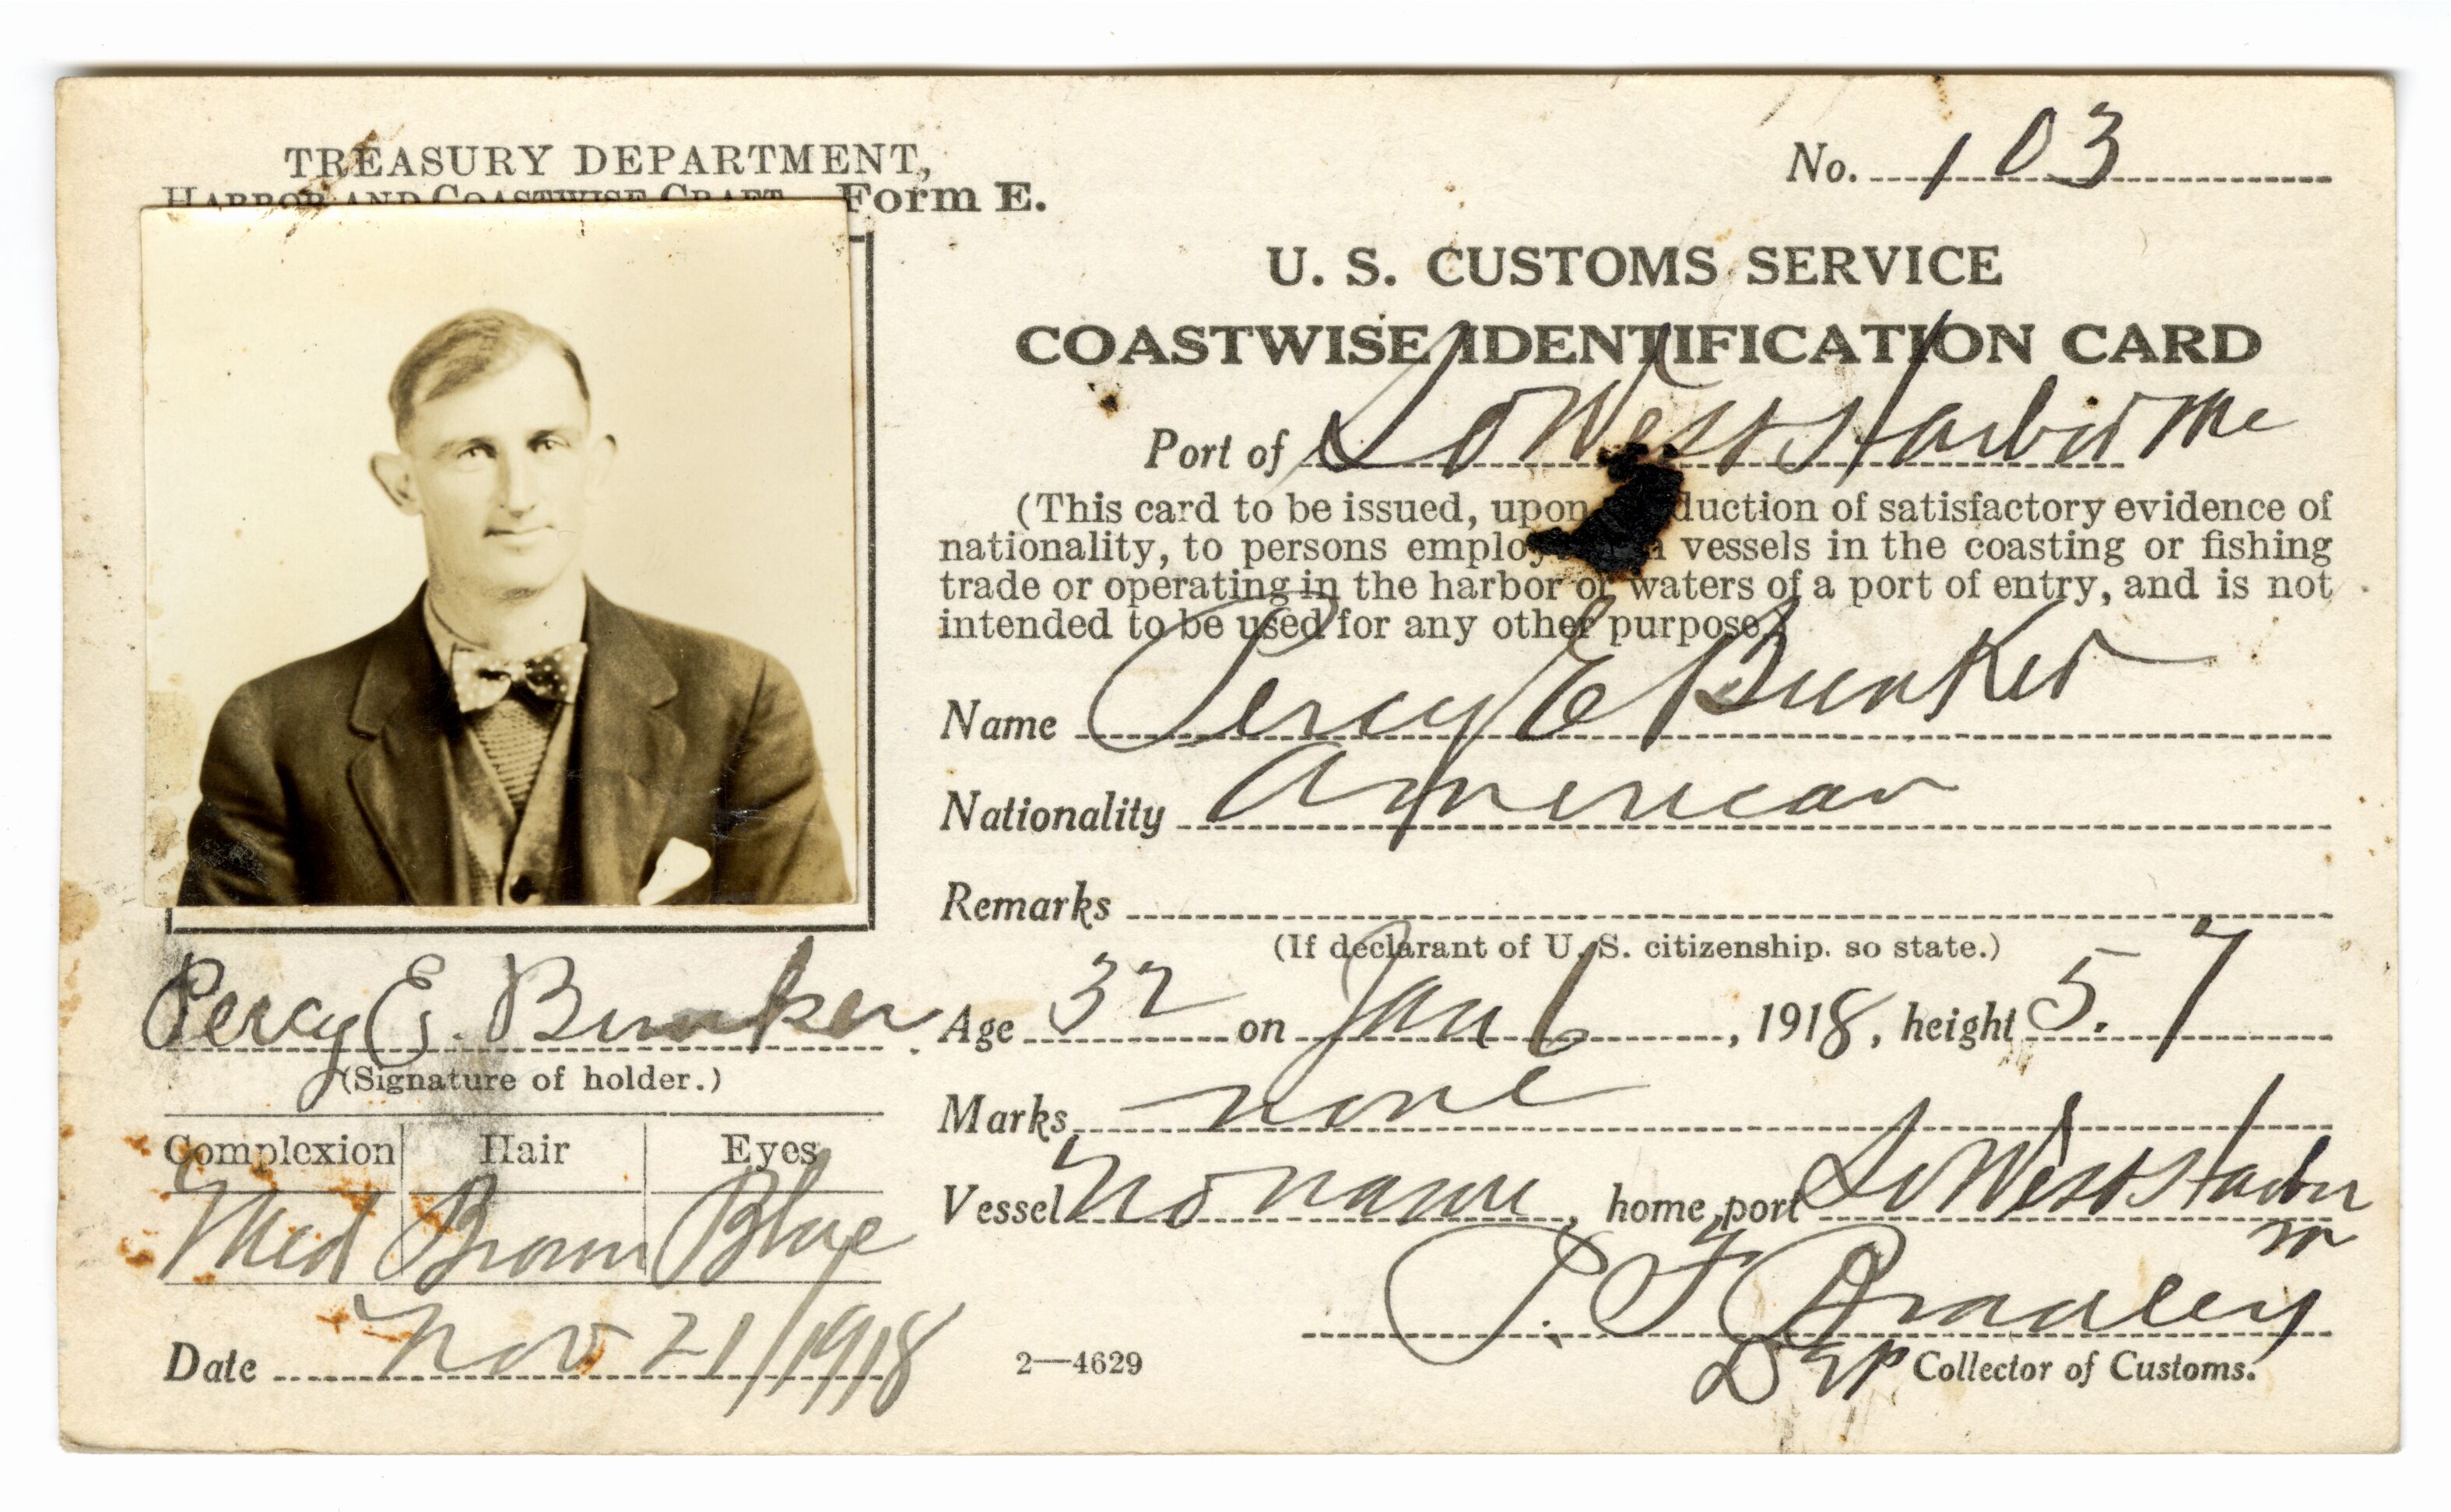 TREASURY DEPARTMENT,
HARBOR AND COASTWISE CRAFT Form E.
No. 103
U. S. CUSTOMS SERVICE
COASTWISE IDENTIFICATION CARD
Port of So West Harbor Me
(This card to be issued, upon duction of satisfactory evidence of
nationality, to persons emplo vessels in the coasting or fishing
trade or operating in the harbor or waters of a port of entry, and is not
intended to be used for any other purpose.)
Name Percy E Bunker
Nationality American
Remarks
(If declarant of U. S. citizenship. so state.)
Percy E. Bunker
(Signature of holder.)
Age 32 on Jan 6, 1918, height 5.7
Marks none
Complexion Hair Eyes
Med Brown Blue
Vessel No name, home port So West Harbor
m
P. F. Bradley
Dep Collector of Customs.
Date Nov 21/1918
2—4629